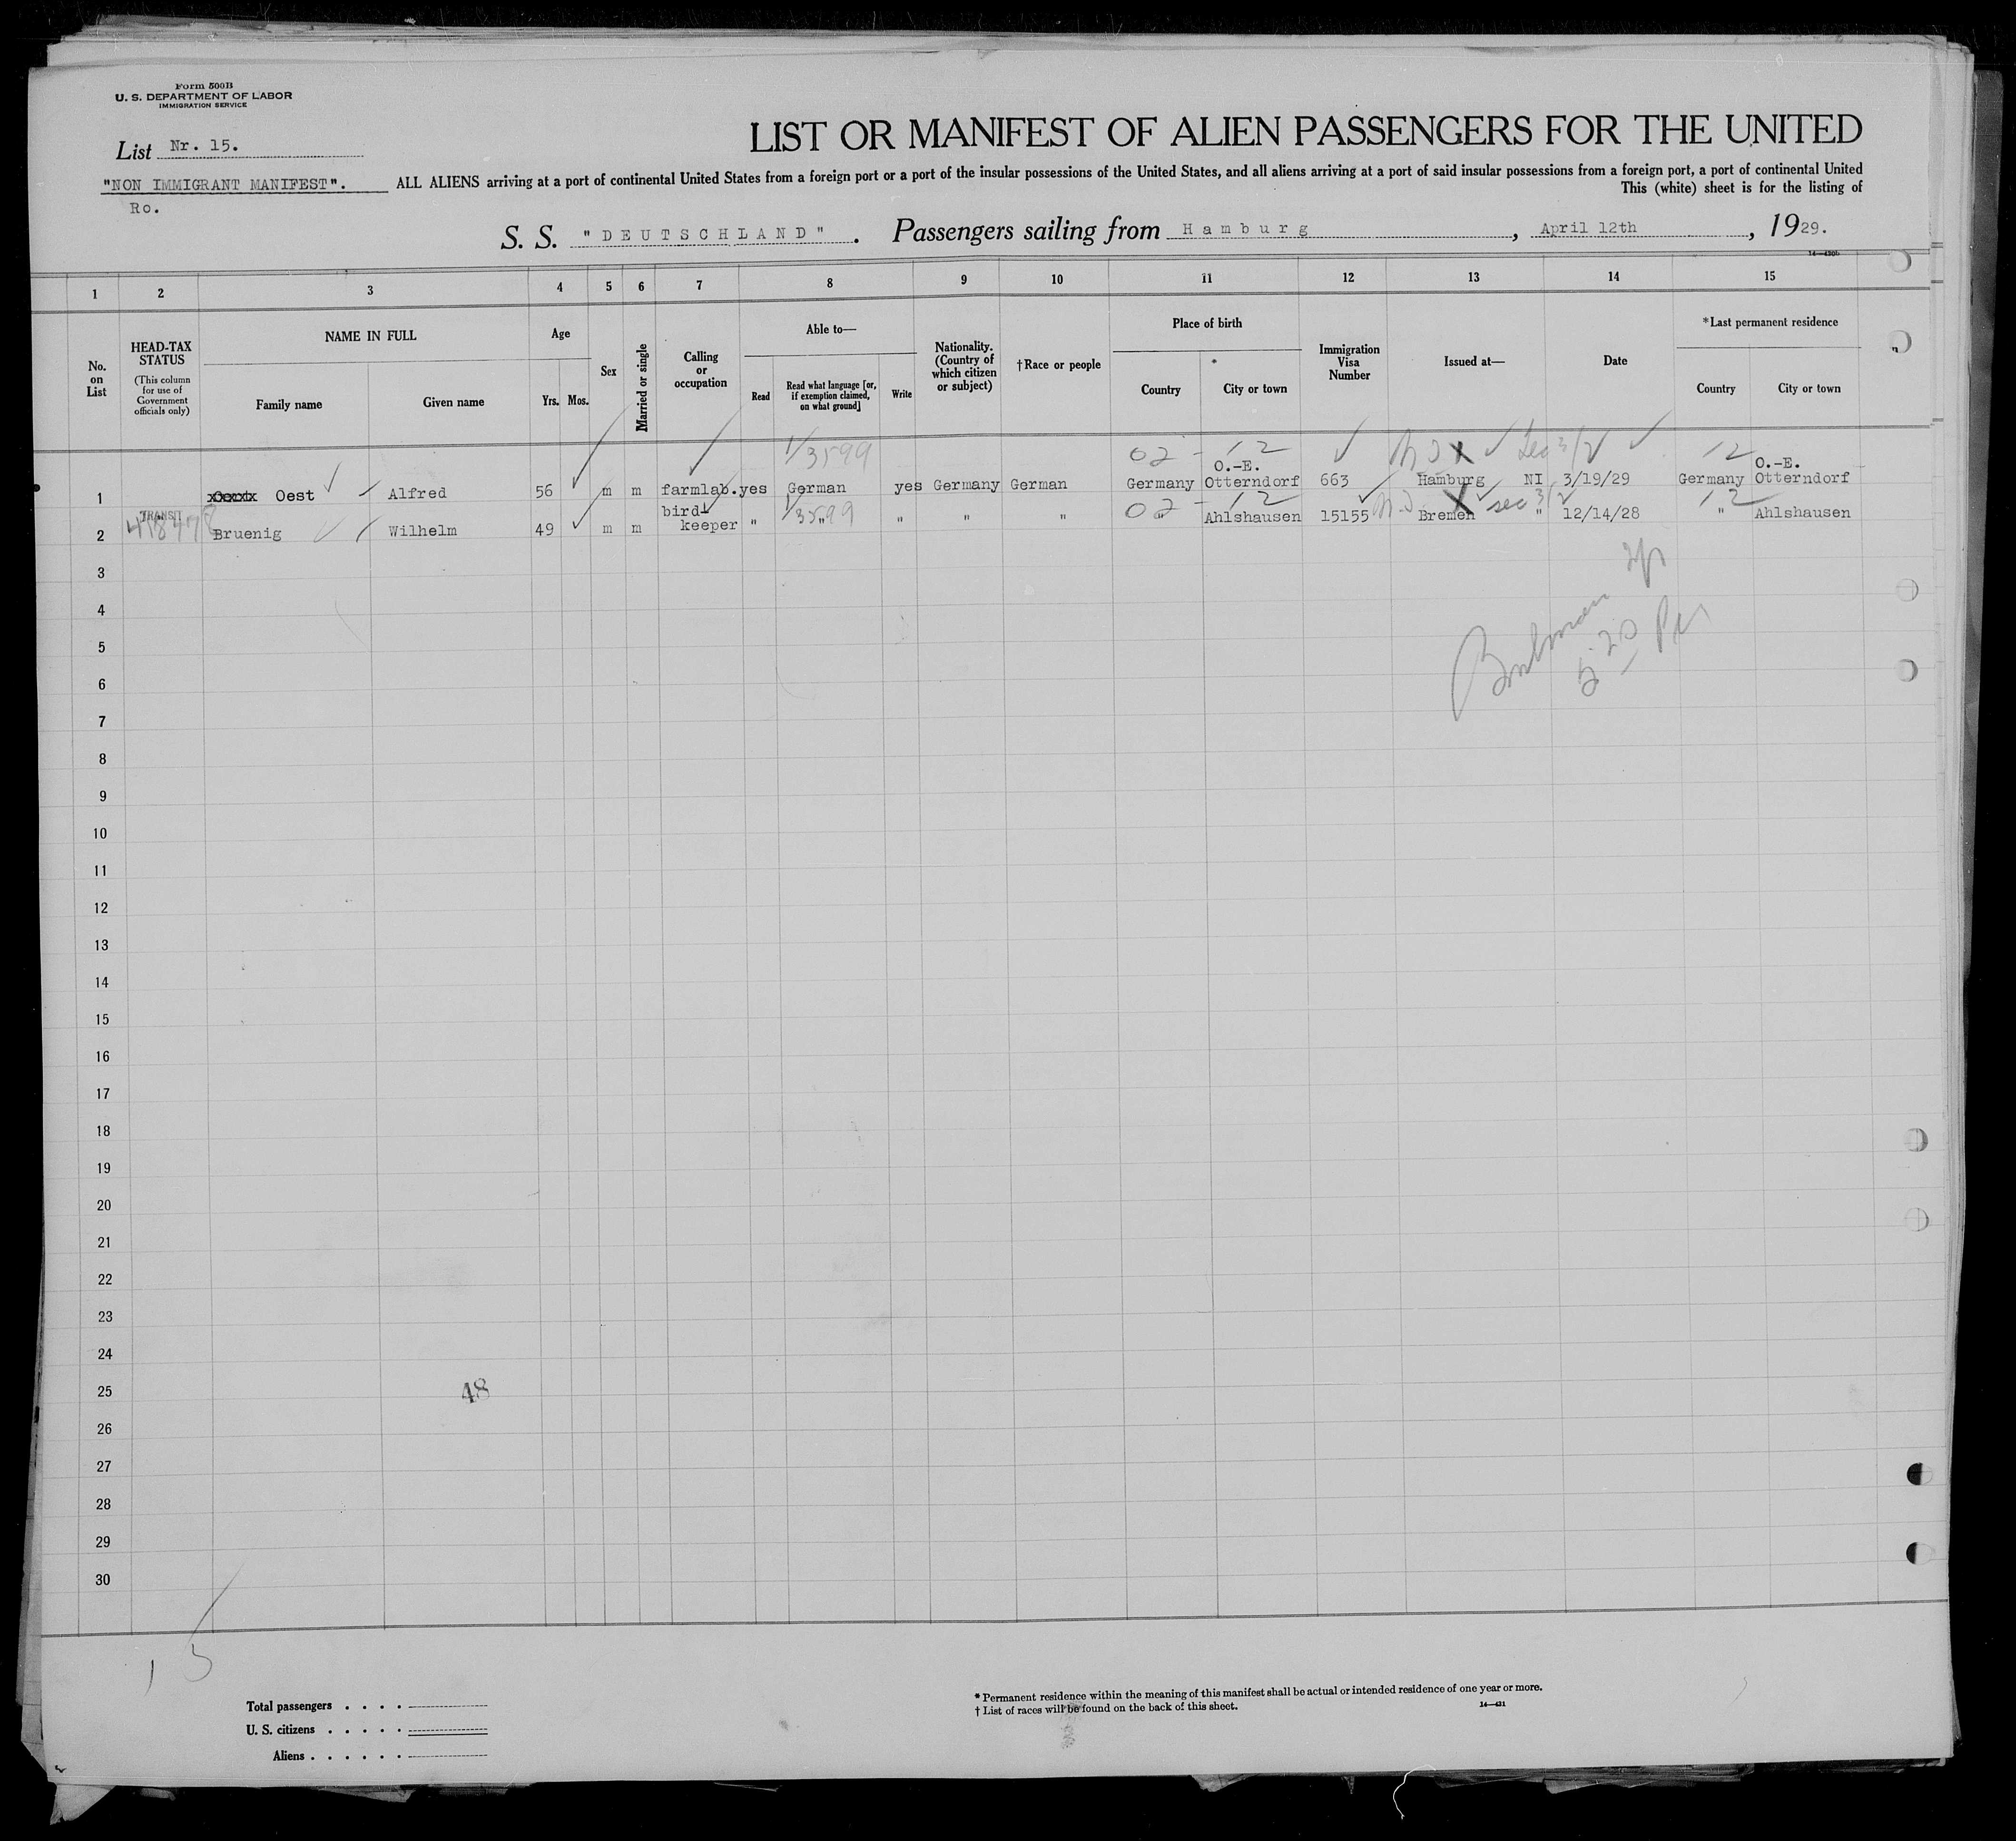 Form 500B
U. S. DEPARTMENT OF LABOR
IMMIGRATION SERVICE
List Nr. 15.
"NON IMMIGRANT MANIFEST".
Ro.
LIST OR MANIFEST OF ALIEN PASSENGERS FOR THE UNITED
ALL ALIENS arriving at a port of continental United States from a foreign port or a port of the insular possessions of the United States, and all aliens arriving at a port of said insular possessions from a foreign port, a port of continental United
This (white) sheet is for the listing of
S. S. "DEUTSCHLAND". Passengers sailing from Hamburg, April 12th, 1929.
14—430b
1 2 3 4 5 6 7 8 9 10 11 12 13 14 15
No. on List
HEAD-TAX STATUS
(This column for use of Government officials only)
NAME IN FULL
Family name
Given name
Age
Yrs. Mos.
Sex
Married or single
Calling or occupation
Able to—
Read
Read what language [or, if exemption claimed, on what ground]
Write
Nationality. (Country of which citizen or subject)
†Race or people
Place of birth
Country
City or town
Immigration Visa Number
Issued at—
Date
*Last permanent residence
Country
City or town
1/3599 02 - 12 12
1 Oest Alfred 56 m m farmlab. yes German yes Germany German Germany O.-E. Otterndorf 663 Hamburg NI 3/19/29 Germany O.-E. Otterndorf
TRANSIT 1/3599 02 - 12 sec 3/2 12
2 Bruenig Wilhelm 49 m m bird keeper " " " " " " Ahlshausen 15155 Bremen " 12/14/28 " Ahlshausen
3
4
5
6
7
8
9
10
11
12
13
14
15
16
17
18
19
20
21
22
23
24
25
48
26
27
28
29
30
15
Total passengers . . . .
U. S. citizens . . . . .
Aliens . . . . . .
* Permanent residence within the meaning of this manifest shall be actual or intended residence of one year or more.
† List of races will be found on the back of this sheet.
14—431